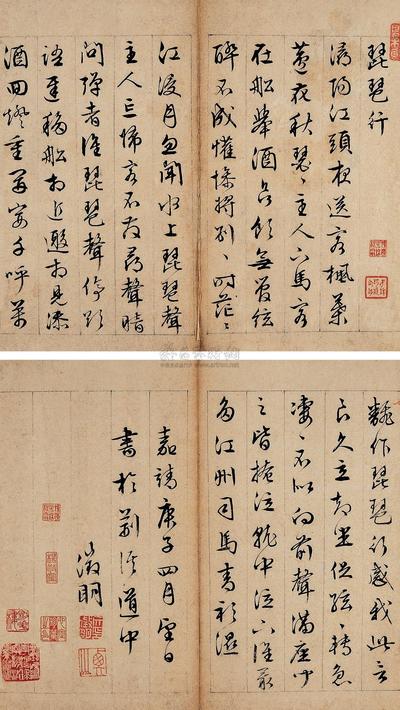 琵琶行
潯陽江頭夜送客楓葉
蘆花秋瑟〻主人下馬客
在船舉酒欲飲無管絃
醉不成懽慘將別〻時茫〻
江浸月忽聞水上琵琶聲
主人忘歸客不發尋聲暗
問彈者誰琵琶聲停欲
語遲移船相近邀相見添
酒回燈重開宴千呼萬
翻作琵琶行感我此言
良久立却坐促絃〻轉急
凄〻不似向前聲滿座聞
之皆掩泣就中泣下誰最
多江州司馬青衫濕
嘉靖庚子四月望日
書於荊溪道中
徵明